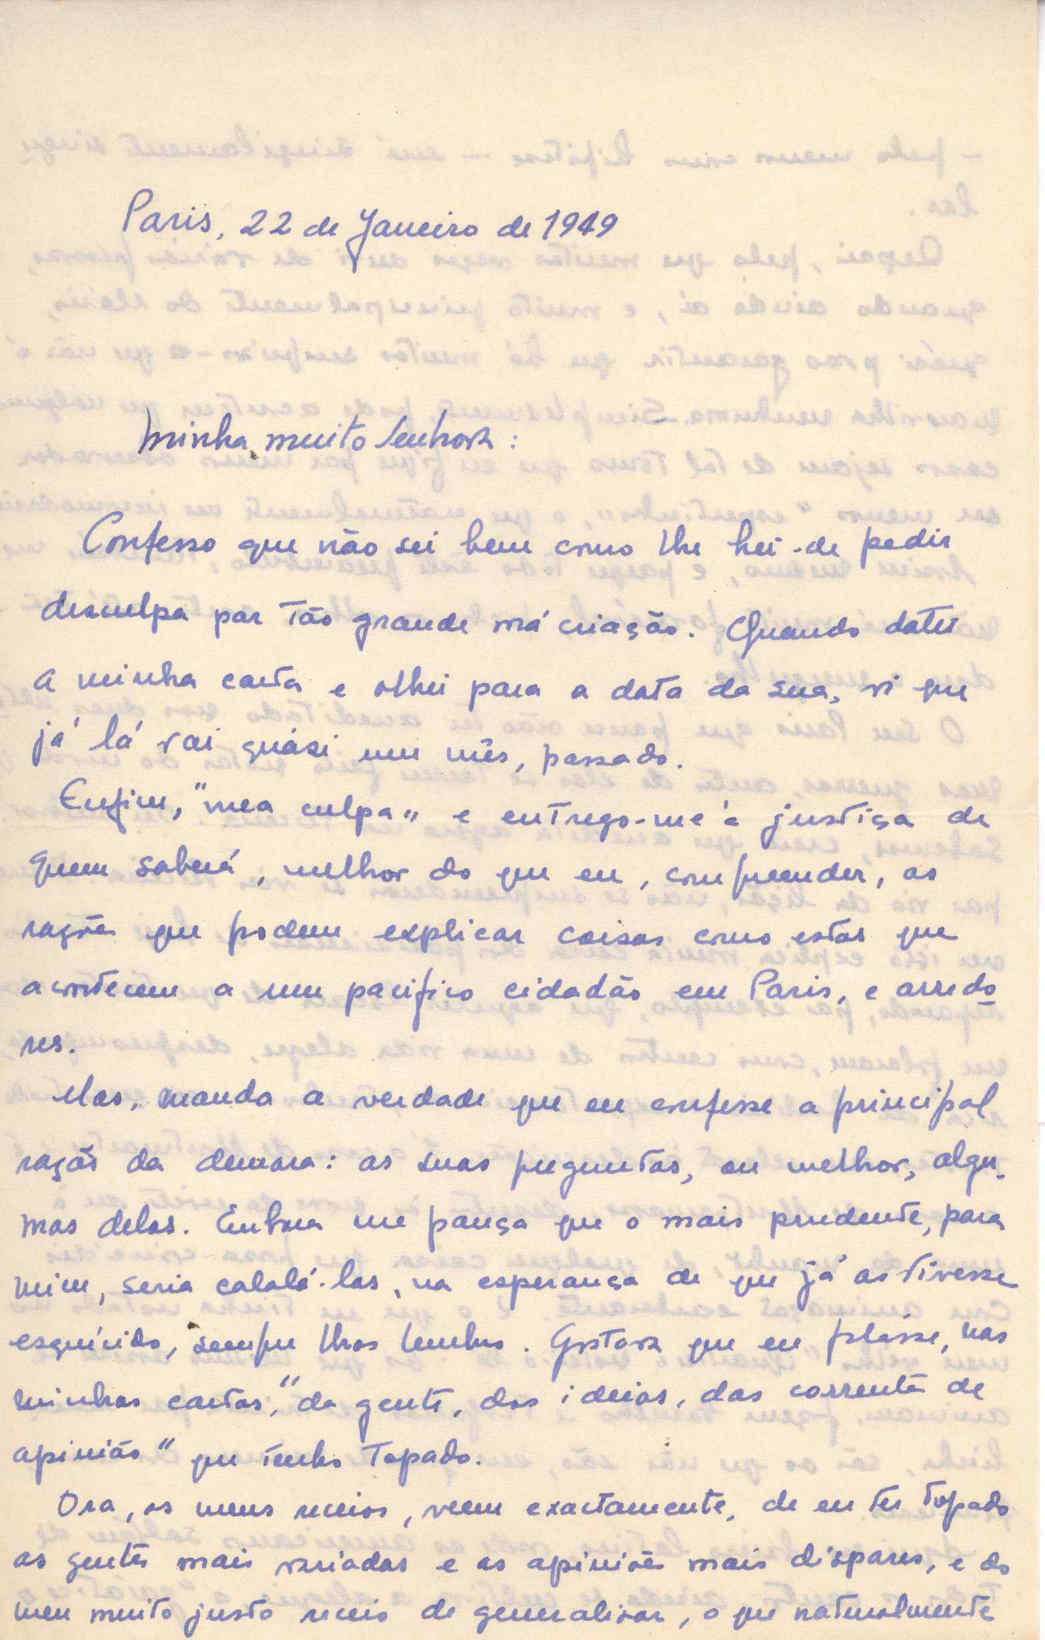 Paris, 22 de Janeiro de 1949
Minha muito Senhora:
Confesso que não sei bem como lhe hei-de pedir
desculpa por tão grande má criação. Quando datei
a minha carta e olhei para a data da sua, vi que
já lá vai quási um mês, passado.
Enfim, "mea culpa" e entrego-me à justiça de
quem saberá, melhor do que eu, compreender, as
razões que podem explicar coisas como estas que
acontecem a um pacífico cidadão em Paris, e arredo
res.
Mas, manda a verdade que eu confesse a principal
razão da demora: as suas preguntas, ou melhor, algu-
mas delas. Embora me pareça que o mais prudente, para
mim, seria calalá-las, na esperança de que já as tivesse
esquècido, sempre lhas lembro. Gostava que eu falásse, nas
minhas cartas, "da gente, das ideias, das correntes de
opinião" que tenho topado.
Ora, os meus receios, veem exactamente, de eu ter topado
as gentes mais variadas e as opiniões mais dispares, e do
meu muito justo receio de generalisar, o que naturalmente